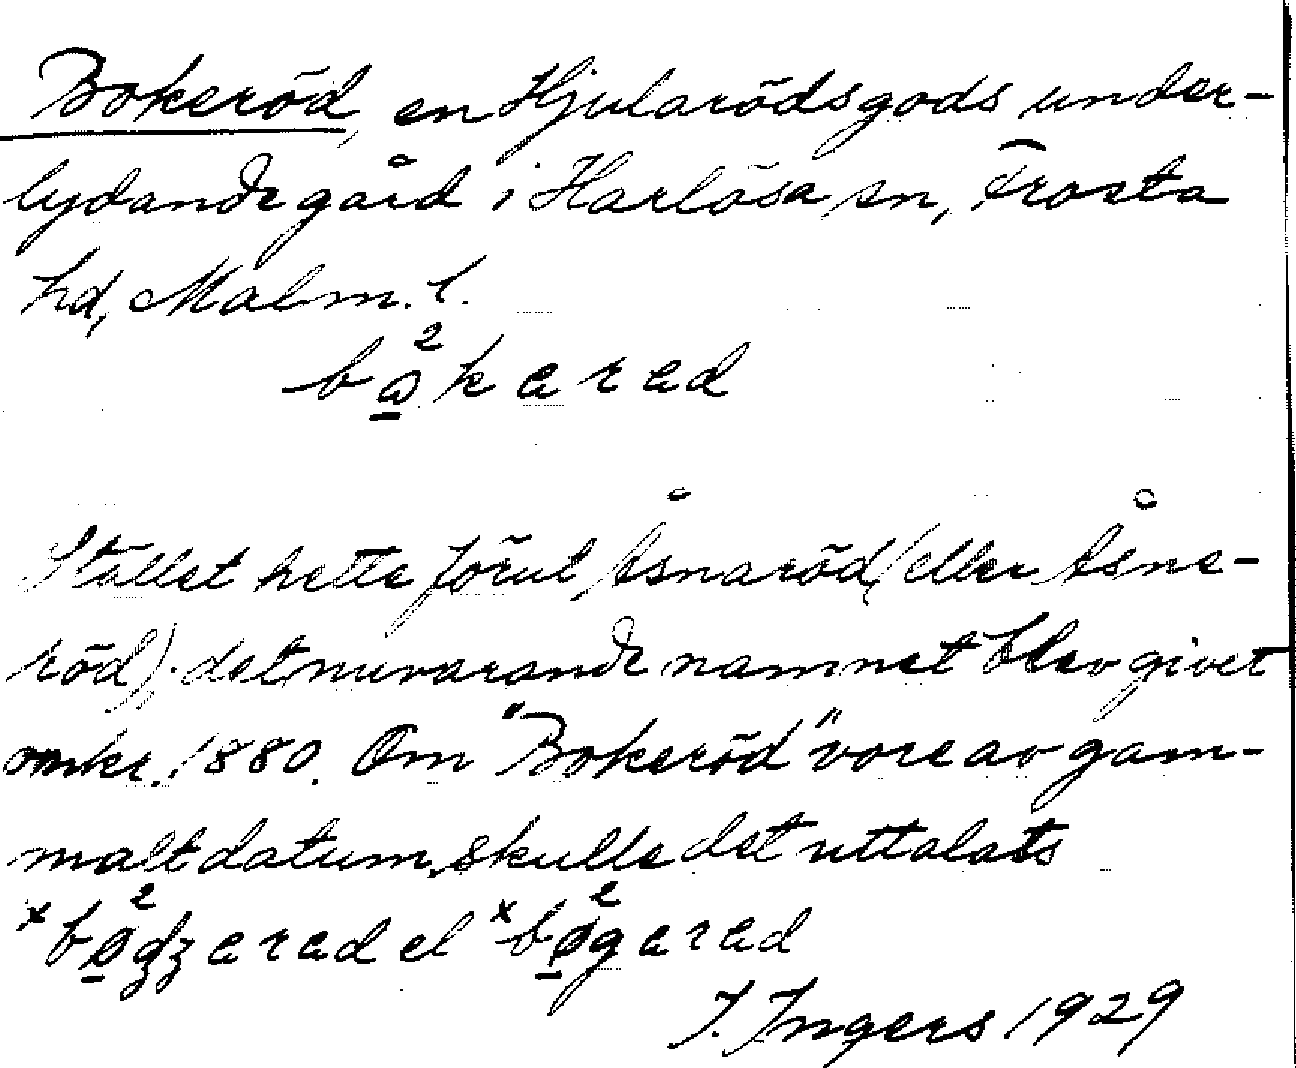 Bokeröd, en Hjularödsgods under-
lydande gård i Harlösa sn, Frosta
hd, Malm. l.
Stället hette förut Åsnaröd (eller Åsne-
röd); det nuvarande namnet blev givet
omkr. 1880. Om "Bokeröd" vore av gam-
malt datum, skulle det uttalats
el
I. Ingers 1929